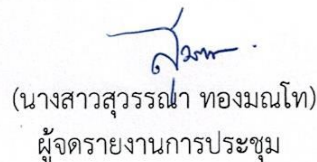 (นางสาวสุวรรณา ทองมณโท)
ผู้จดรายงานการประชุม